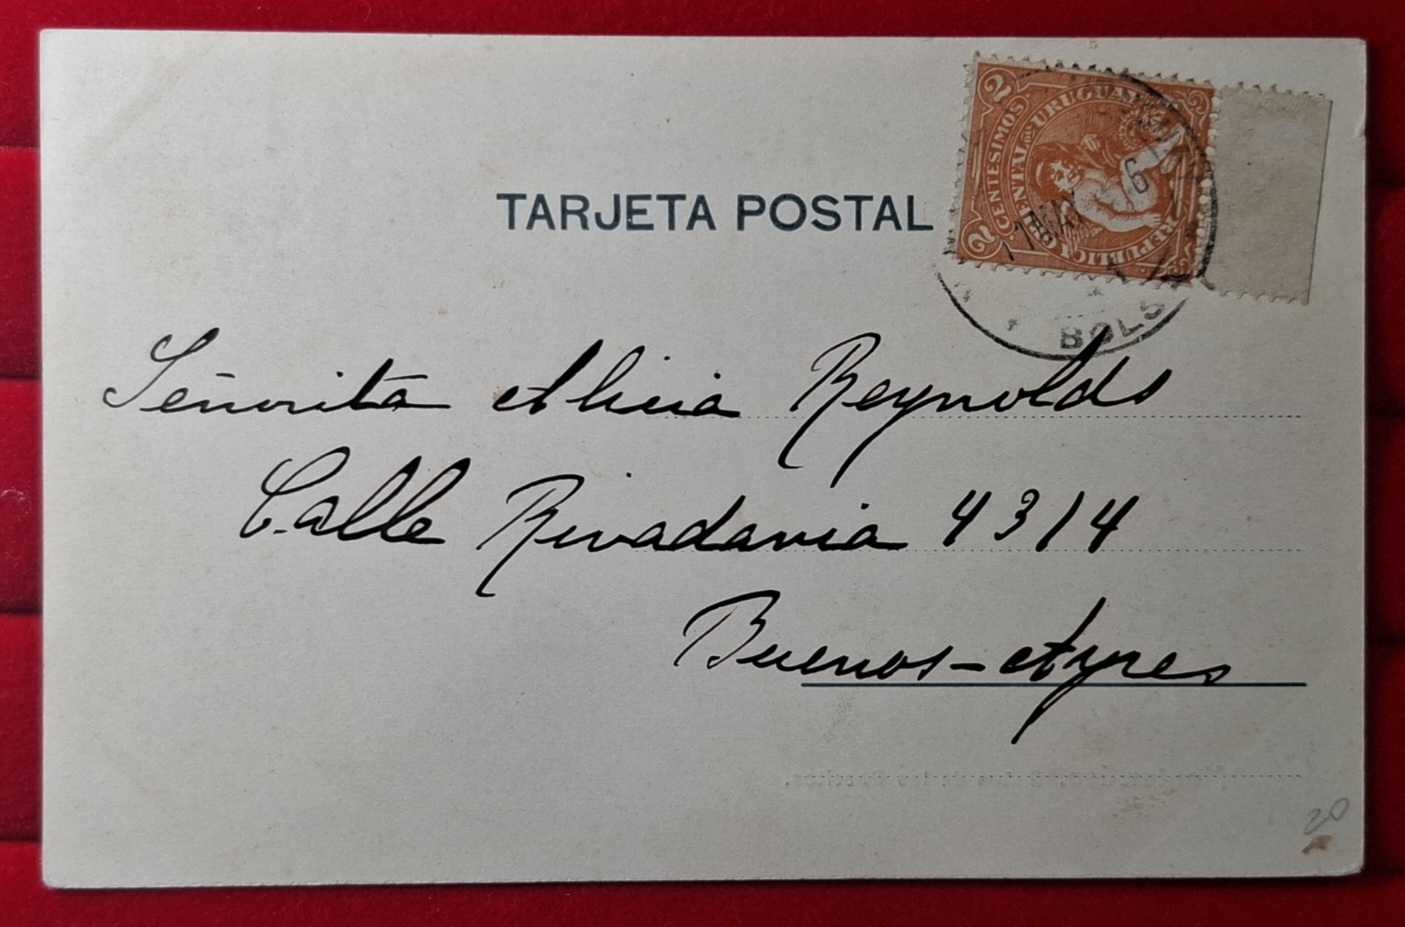 TARJETA POSTAL
2 CENTESIMOS 2
REPUBLICA ORIENTAL DEL URUGUAY
MAY
6
BOLS
Señorita Alicia Reynolds
Calle Rivadavia 4314
Buenos-Ayres
20